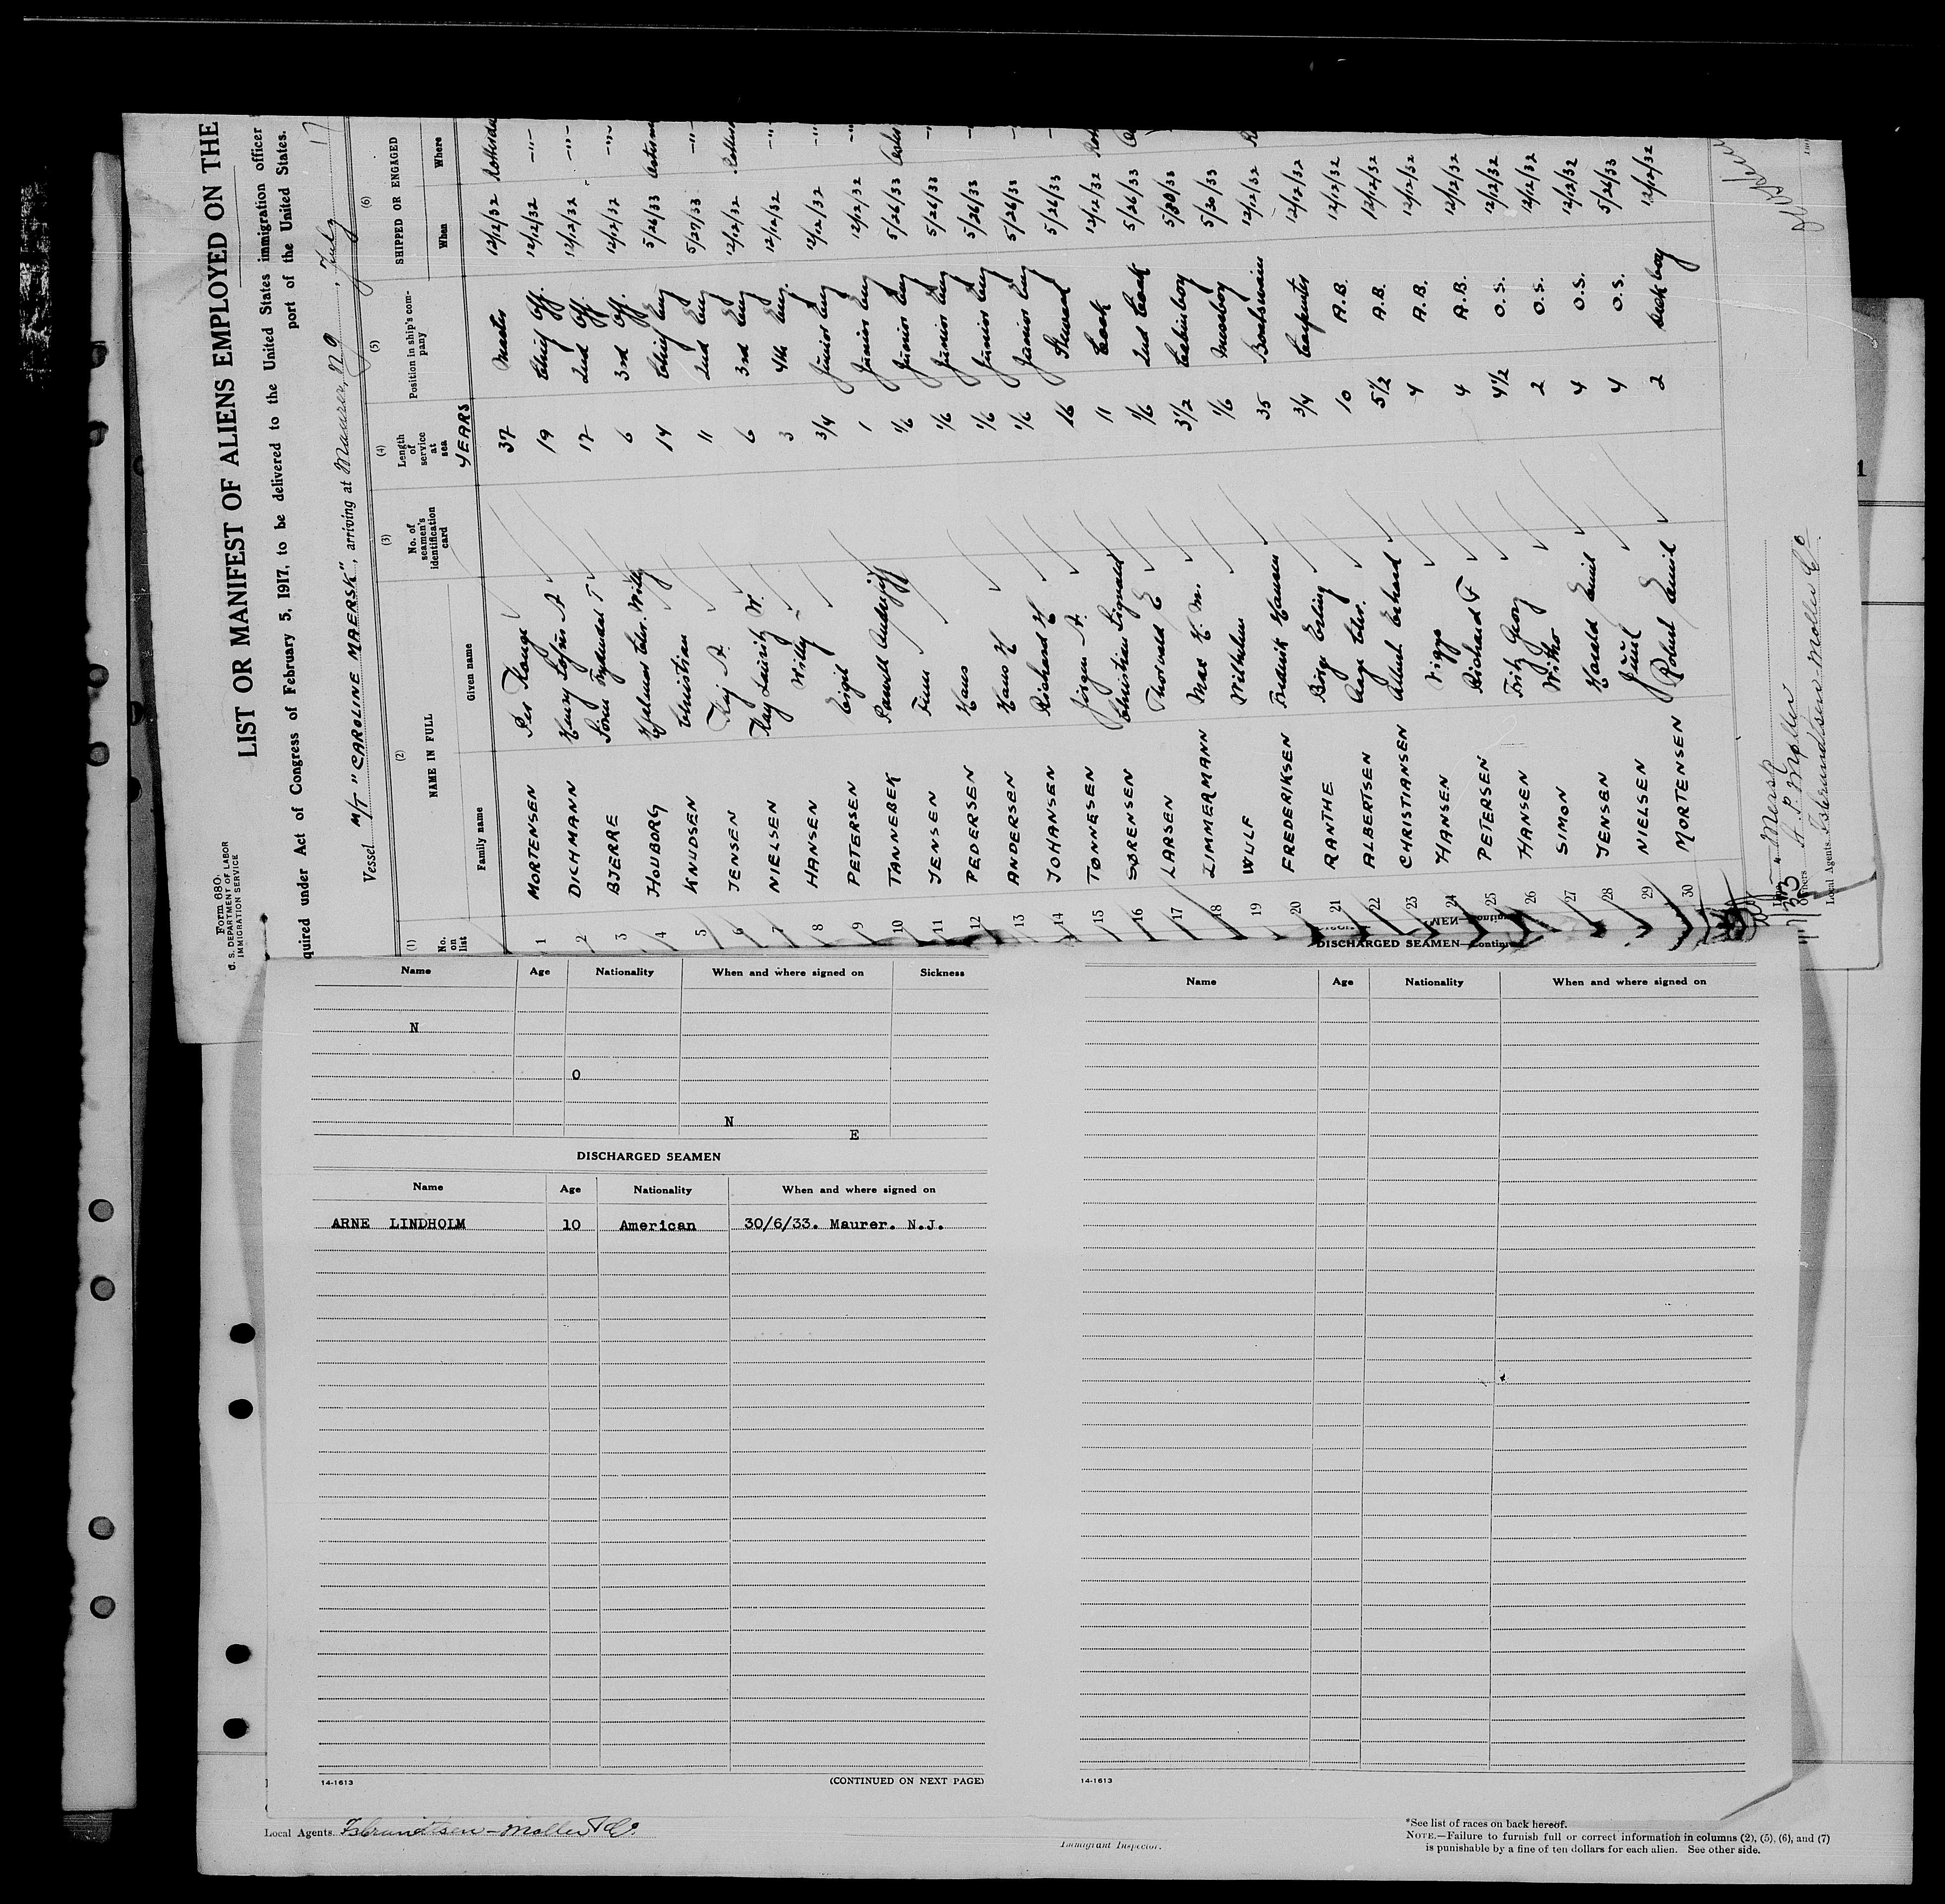 Form 680
U. S. DEPARTMENT OF LABOR
IMMIGRATION SERVICE
LIST OR MANIFEST OF ALIENS EMPLOYED ON THE
quired under Act of Congress of February 5, 1917, to be delivered to the United States immigration officer
port of the United States.
Vessel M/T "CAROLINE MAERSK", arriving at Maurer, N J, July 17
(1) (2) (3) (4) (5) (6)
No. on list NAME IN FULL No. of seamen's identification card Length of service at sea Position in ship's company SHIPPED OR ENGAGED
Family name Given name YEARS When Where
1 MORTENSEN Per 37 Master 12/12/32
2 DICHMANN Henry 19 Chief Off. 12/12/32 -"-
3 BJERRE Sören T 17 2nd Off. 12/12/32 -"-
4 HOUBORG Hjalmar Chr. Willy 6 3rd Off. 12/12/32 -"-
5 KNUDSEN Christian 14 Chief Eng 5/26/33
6 JENSEN Kaj A. 11 2nd Eng 5/27/33 -"-
7 NIELSEN Kaj Lauritz W. 6 3rd Eng 12/12/32
8 HANSEN Willy 3 4th Eng. 12/12/32 -"-
9 PETERSEN Eigil 3/4 Junior Eng 12/12/32 -"-
10 TANNEBEK 1 Junior Eng 12/12/32 -"-
11 JENSEN Finn 1/6 Junior Eng 5/26/33
12 PEDERSEN Hans 1/6 Junior Eng 5/26/33
13 ANDERSEN Hans H 1/6 Junior Eng 5/26/33
14 JOHANSEN Richard H 1/6 Junior Eng 5/26/33
15 TØNNESEN Jörgen A. 16 Steward 5/26/33
16 SØRENSEN Christian Sigvald 11 Cook 12/12/32
17 LARSEN Thorvald E 1/6 2nd Cook 5/26/33
18 ZIMMERMANN Max H. M. 3 1/2 Cabinboy 5/30/33
19 WULF Wilhelm 1/6 Messboy 5/30/33
20 FREDERIKSEN Fredrik Hansen 35 Boatswain 12/12/32
21 RANTHE Börge Erling 3/4 Carpenter 12/12/32
22 ALBERTSEN Aage Chr. 10 A.B. 12/12/32
23 CHRISTIANSEN Albert Erhard 5 1/2 A.B. 12/12/32
24 HANSEN Viggo 4 A.B. 12/12/32
25 PETERSEN Richard F 4 A.B. 12/12/32
26 HANSEN Fritz Georg 4 1/2 O.S. 12/12/32
27 SIMON 2 O.S. 12/12/32
28 JENSEN Harald Emil 4 O.S. 12/12/32
29 NIELSEN Juul 4 O.S. 5/26/33
30 MORTENSEN Robert Emil 2 Deckboy 12/12/32
Maersk
Owners A. P. Møller
Local Agents Isbrandtsen-Moller Co
Name Age Nationality When and where signed on Sickness
N
O
N
E
DISCHARGED SEAMEN
Name Age Nationality When and where signed on
ARNE LINDHOLM 10 American 30/6/33. Maurer. N.J.
14-1613 (CONTINUED ON NEXT PAGE)
DISCHARGED SEAMEN—Continued
Name Age Nationality When and where signed on
14-1613
Local Agents Isbrandtsen-Moller & Co.
Immigrant Inspector.
*See list of races on back hereof.
NOTE.—Failure to furnish full or correct information in columns (2), (5), (6), and (7)
is punishable by a fine of ten dollars for each alien. See other side.